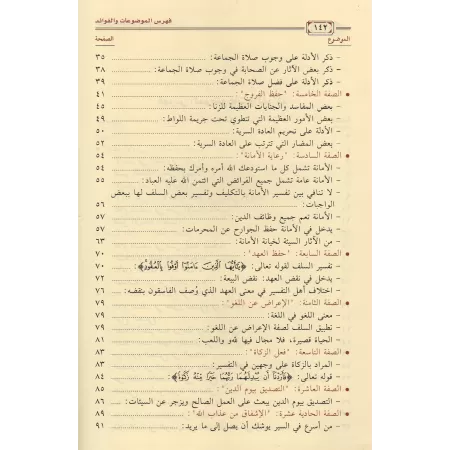 فهرس الموضوعات والفوائد
١٤٢
الموضوع الصفحة
- ذكر الأدلة على وجوب صلاة الجماعة: ٣٥
- ذكر بعض الآثار عن الصحابة في وجوب صلاة الجماعة: ٣٨
- ذكر الأدلة على فضل صلاة الجماعة: ٣٩
• الصفة الخامسة: "حفظ الفروج": ٤١
- بعض المفاسد والجنايات العظيمة للزنا: ٤٥
- بعض الأمور العظيمة التي تنطوي تحت جريمة اللواط: ٤٩
- الأدلة على تحريم العادة السرية: ٥٠
- بعض المضار التي تترتب على العادة السرية: ٥٢
• الصفة السادسة: "رعاية الأمانة": ٥٤
- الأمانة تشمل كل ما استودعك الله أمره وأمرك بحفظه: ٥٤
- الأمانة عامة تشمل جميع الفرائض التي ائتمن الله عليه العباد: ٥٥
- لا تنافي بين تفسير الأمانة بالتكليف وتفسير بعض السلف لها ببعض
الواجبات: ٥٦
- الأمانة تعم جميع وظائف الدين: ٥٧
- يدخل في الأمانة حفظ الجوارح عن المحرمات: ٥٧
- من الآثار السيئة لخيانة الأمانة: ٦٣
• الصفة السابعة: "حفظ العهد": ٧٠
- تفسير السلف لقوله تعالى: ﴿يَٰٓأَيُّهَا ٱلَّذِينَ ءَامَنُوٓا۟ أَوْفُوا۟ بِٱلْعُقُودِ﴾: ٧٠
- يدخل في نقض العهد: نقض البيعة: ٧٢
- اختلاف أهل التفسير في معنى العهد الذي وُصف الفاسقون بنقضه: ٧٦
• الصفة الثامنة: "الإعراض عن اللغو": ٧٩
- معنى اللغو في اللغة: ٧٩
- تطبيق السلف لصفة الإعراض عن اللغو: ٧٩
- الحياة قصيرة، فلا مجال فيها للهو واللعب: ٨١
• الصفة التاسعة: "فعل الزكاة": ٨٣
- المراد بالزكاة على وجهين في التفسير: ٨٣
- قوله تعالى: ﴿فَأَرَدْنَآ أَن يُبْدِلَهُمَا رَبُّهُمَا خَيْرًا مِّنْهُ زَكَوٰةً﴾: ٨٤
• الصفة العاشرة: "التصديق بيوم الدين": ٨٥
- التصديق بيوم الدين يبعث على العمل الصالح ويزجر عن السيئات: ٨٦
• الصفة الحادية عشرة: "الإشفاق من عذاب الله": ٨٩
- من أسرع في السير يوشك أن يصل إلى ما يريد: ٩١